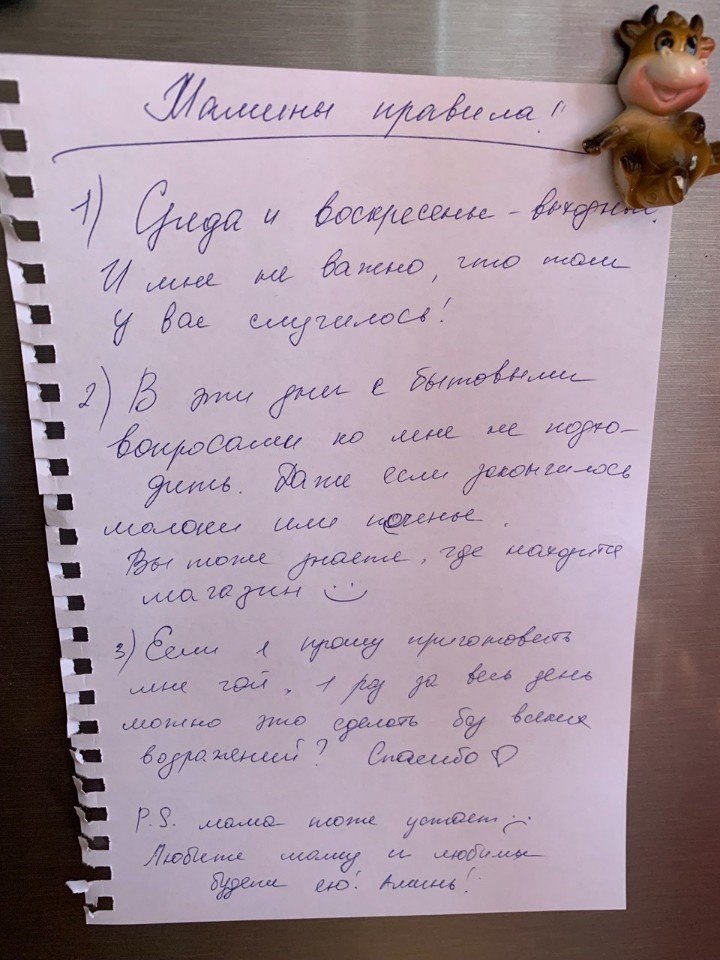 Мамины правила!
1) Среда и воскресенье - выходные.
И мне не важно, что там
у вас случилось!
2) В эти дни с бытовыми
вопросами ко мне не подхо-
дить. Даже если закончилось
молоко или печенье.
Вы тоже знаете, где находится
магазин :)
3) Если я прошу приготовить
мне чай, 1 раз за весь день
можно это сделать без всяких
возражений? Спасибо ♡
P.S. мама тоже устает :(
Любите маму и любимы
будете ею! Аминь!